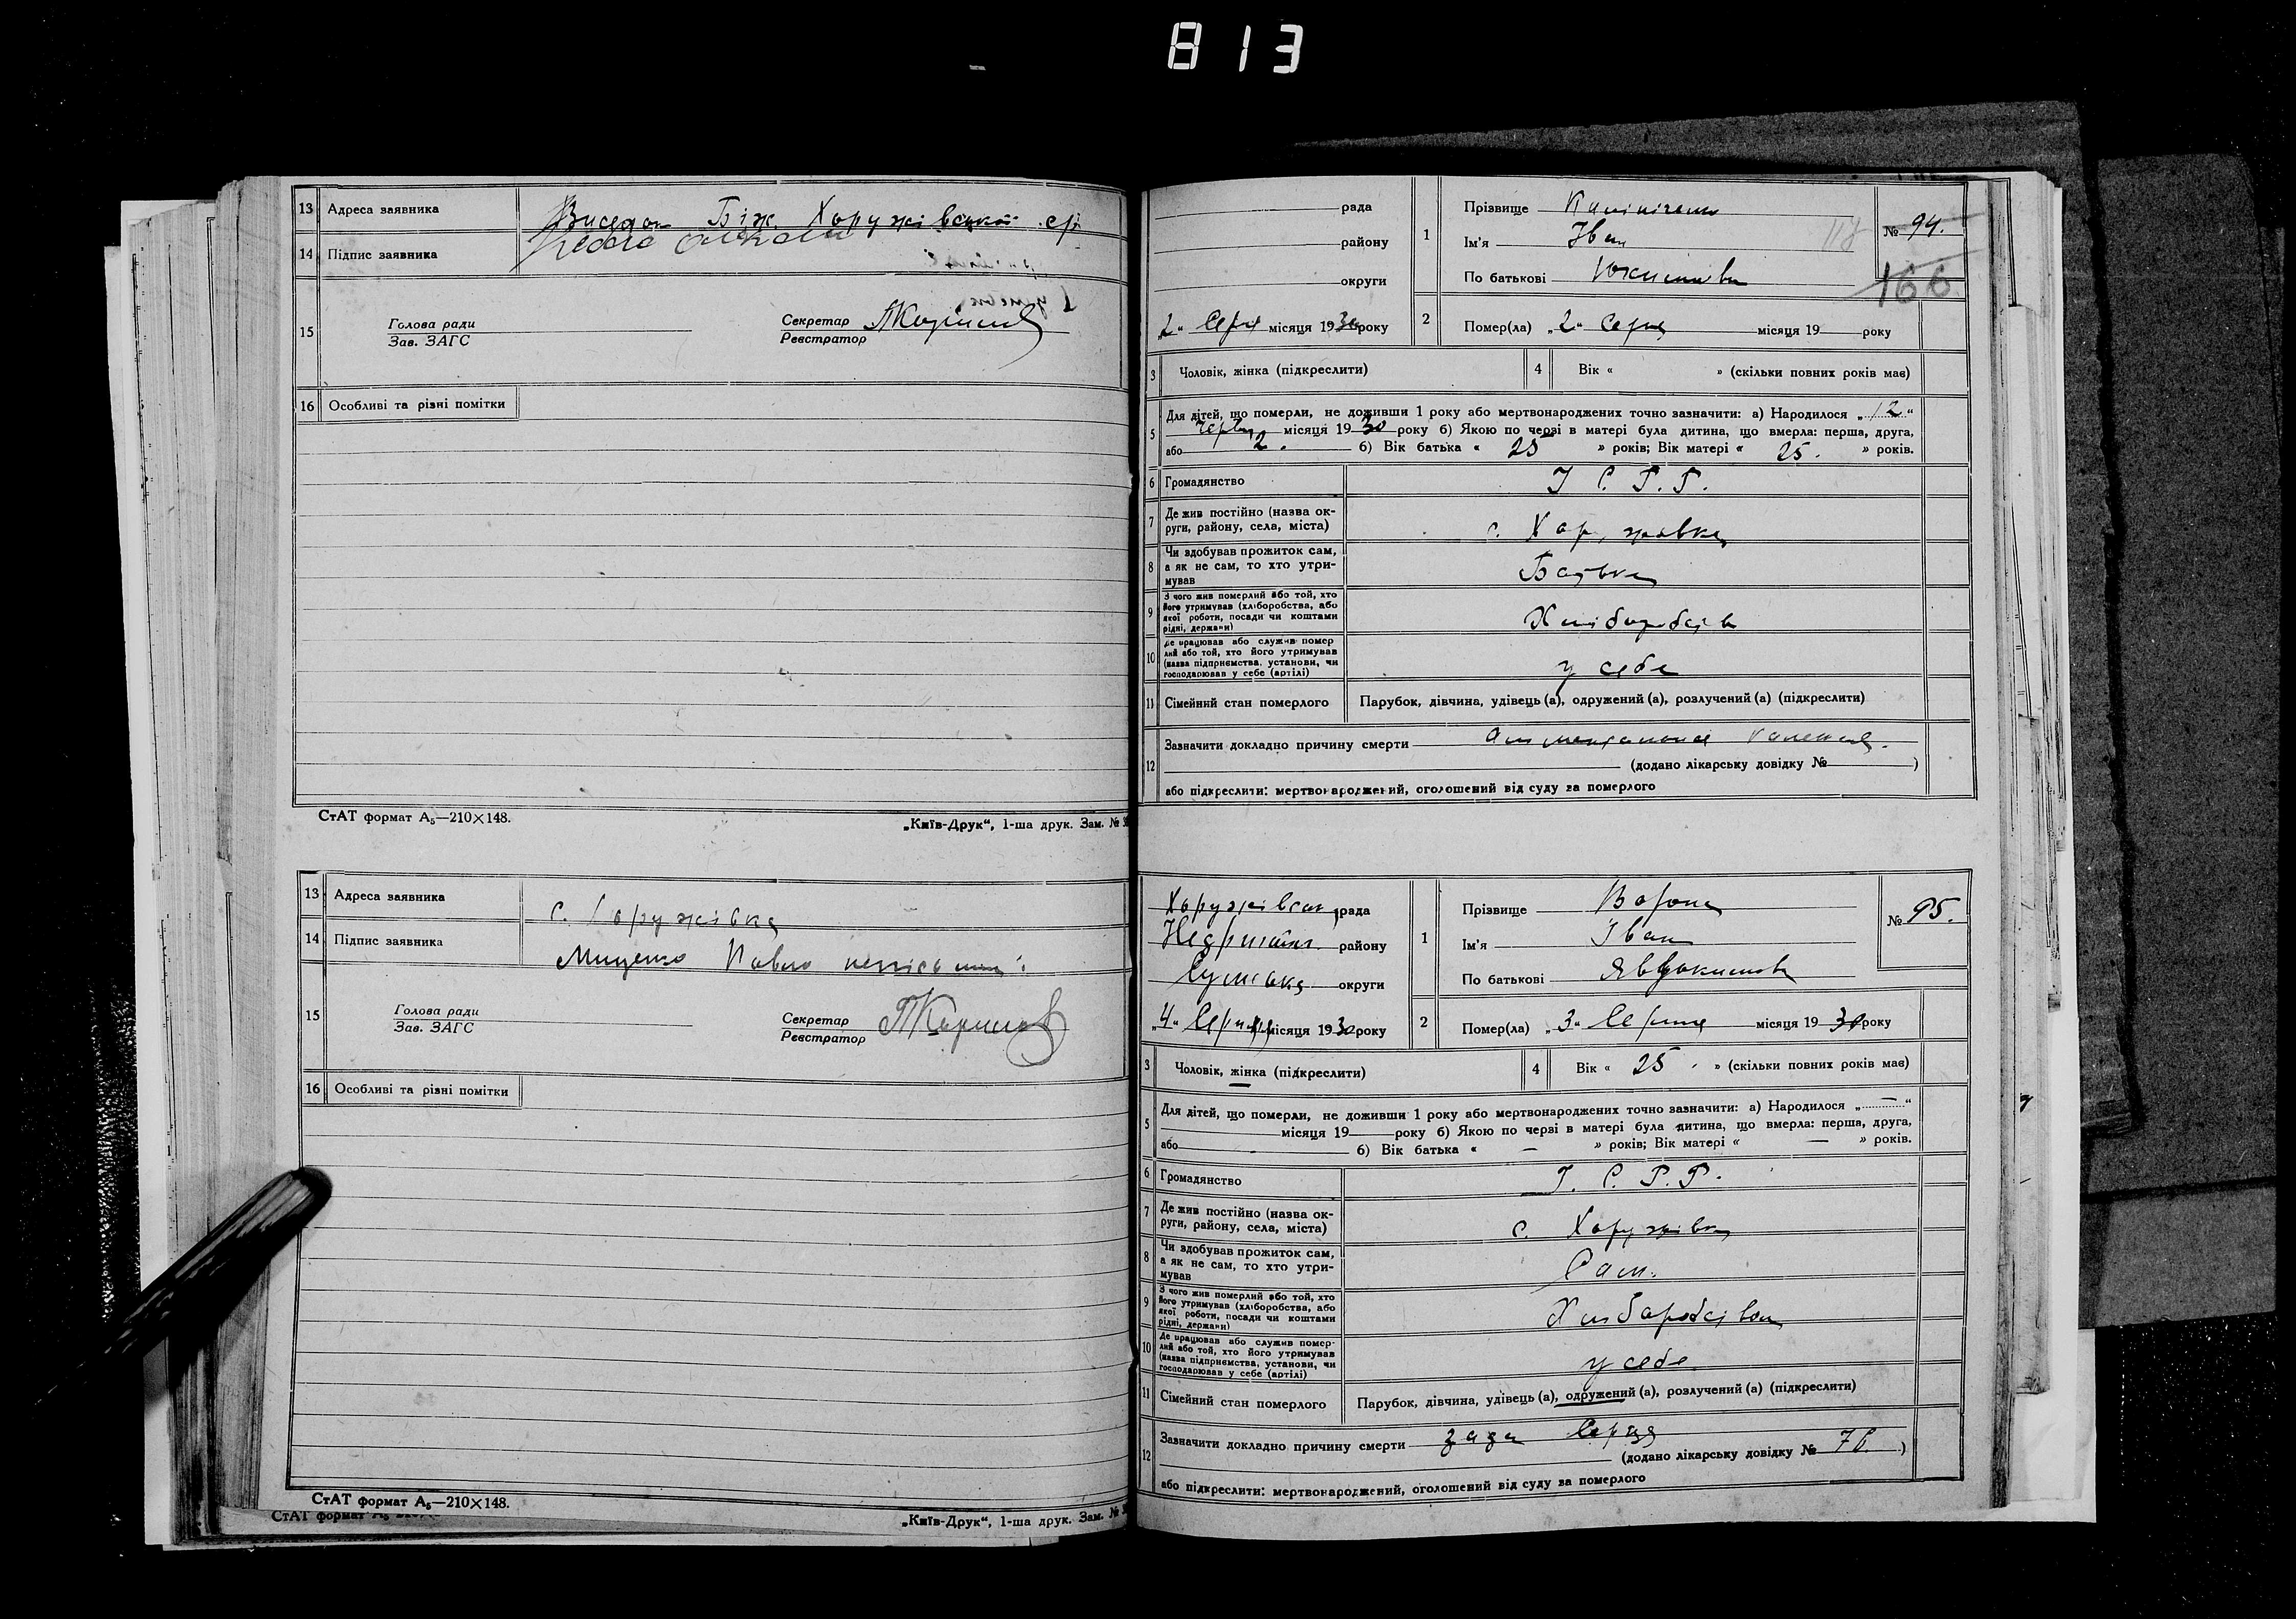 813
13 Адреса заявника Виселок Біж. Харужівської с/р
14 Підпис заявника
15 Голова ради
Зав. ЗАГС
Секретар
Реєстратор
16 Особливі та різні помітки
СтАТ формат А₅—210×148.
„Київ-Друк“, 1-ша друк. Зам. №
13 Адреса заявника с. Хоружівка
14 Підпис заявника Мищенко Павло
15 Голова ради
Зав. ЗАГС
Секретар
Реєстратор
16 Особливі та різні помітки
СтАТ формат А₅—210×148.
СтАТ формат А₅
„Київ-Друк“, 1-ша друк. Зам. №
рада
району
округи
„2“ Серп місяця 1930 року
1 Прізвище
Ім'я Іван
По батькові
№ 94.
166
2 Помер(ла) „2“ Серп місяця 19 року
3 Чоловік, жінка (підкреслити)
4 Вік « » (скільки повних років мав)
5 Для дітей, що померли, не доживши 1 року або мертвонароджених точно зазначити: а) Народилося „12“
червн місяця 1930 року б) Якою по черзі в матері була дитина, що вмерла: перша, друга,
або 2. б) Вік батька « 25 » років; Вік матері « 25. » років.
6 Громадянство У С. Р. Р.
7 Де жив постійно (назва округи, району, села, міста) с. Харужівка
8 Чи здобував прожиток сам,
а як не сам, то хто утримував Батько
9 З чого жив померлий або той, хто
його утримував (хліборобства, або
якої роботи, посади чи коштами
рідні, держави) Хліборобств
10 Де працював або служив померлий або той, хто його утримував
(назва підприємства, установи, чи
господарював у себе (артілі) у себе
11 Сімейний стан померлого Парубок, дівчина, удівець (а), одружений (а), розлучений (а) (підкреслити)
12 Зазначити докладно причину смерти
(додано лікарську довідку № )
або підкреслити: мертвонароджений, оголошений від суду за померлого
Харужівськ рада
Недригайл. району
Сумська округи
„4“ Серпня місяця 1930 року
1 Прізвище Ворона
Ім'я Іван
По батькові Явдокимов
№ 95.
2 Помер(ла) „3“ Серпня місяця 1930 року
3 Чоловік, жінка (підкреслити)
4 Вік « 25 » (скільки повних років мав)
5 Для дітей, що померли, не доживши 1 року або мертвонароджених точно зазначити: а) Народилося „—“
місяця 19 року б) Якою по черзі в матері була дитина, що вмерла: перша, друга,
або б) Вік батька « — » років; Вік матері « — » років.
6 Громадянство У. С. Р. Р.
7 Де жив постійно (назва округи, району, села, міста) с. Харужівка
8 Чи здобував прожиток сам,
а як не сам, то хто утримував Сам.
9 З чого жив померлий або той, хто
його утримував (хліборобства, або
якої роботи, посади чи коштами
рідні, держави) Хліборобством
10 Де працював або служив померлий або той, хто його утримував
(назва підприємства, установи, чи
господарював у себе (артілі) у себе
11 Сімейний стан померлого Парубок, дівчина, удівець (а), одружений (а), розлучений (а) (підкреслити)
12 Зазначити докладно причину смерти Серця
(додано лікарську довідку № 76 )
або підкреслити: мертвонароджений, оголошений від суду за померлого